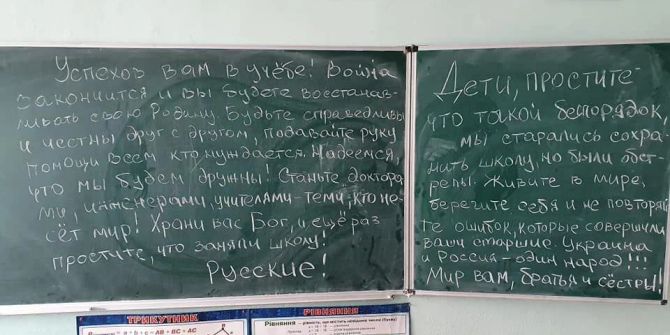 Успехов вам в учёбе! Война
закончится и вы будете восстанав-
ливать свою Родину. Будьте справедливы
и честны друг с другом, подавайте руку
помощи всем кто нуждается. Надеемся,
что мы будем дружны! Станьте доктора-
ми, инженерами, учителями - теми, кто не-
сёт мир! Храни вас Бог, и ещё раз
простите, что заняли школу!
Русские!
Дети, простите
что такой беспорядок,
мы старались сохра-
нить школу, но были обст-
релы. Живите в мире,
берегите себя и не повторяй
те ошибок, которые совершили
ваши старшие. Украина
и Россия - один народ!!!
Мир вам, братья и сёстры!!
ТРИКУТНИК
a + b + c = AB + BC + AC
РІВНЯННЯ
Рівняння